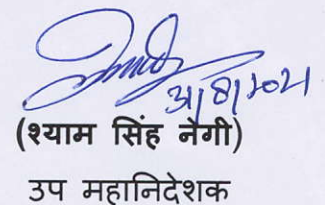 31/8/2021
(श्याम सिंह नेगी)
उप महानिदेशक